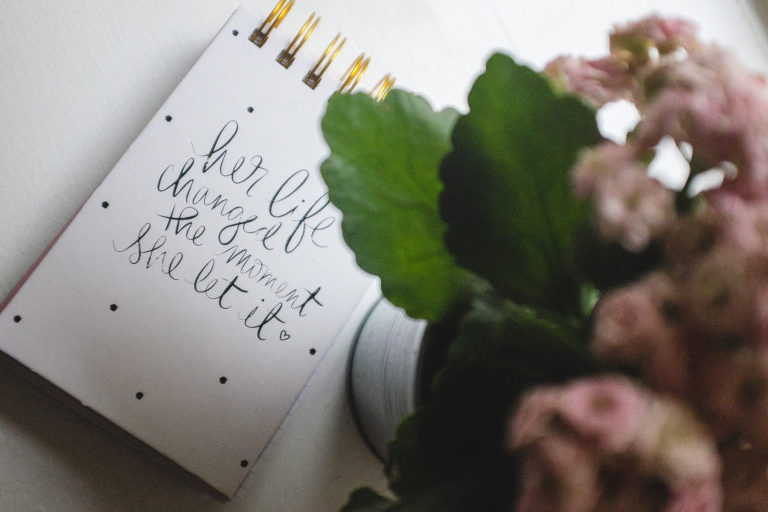 her life
changed
the moment
she let it ♡